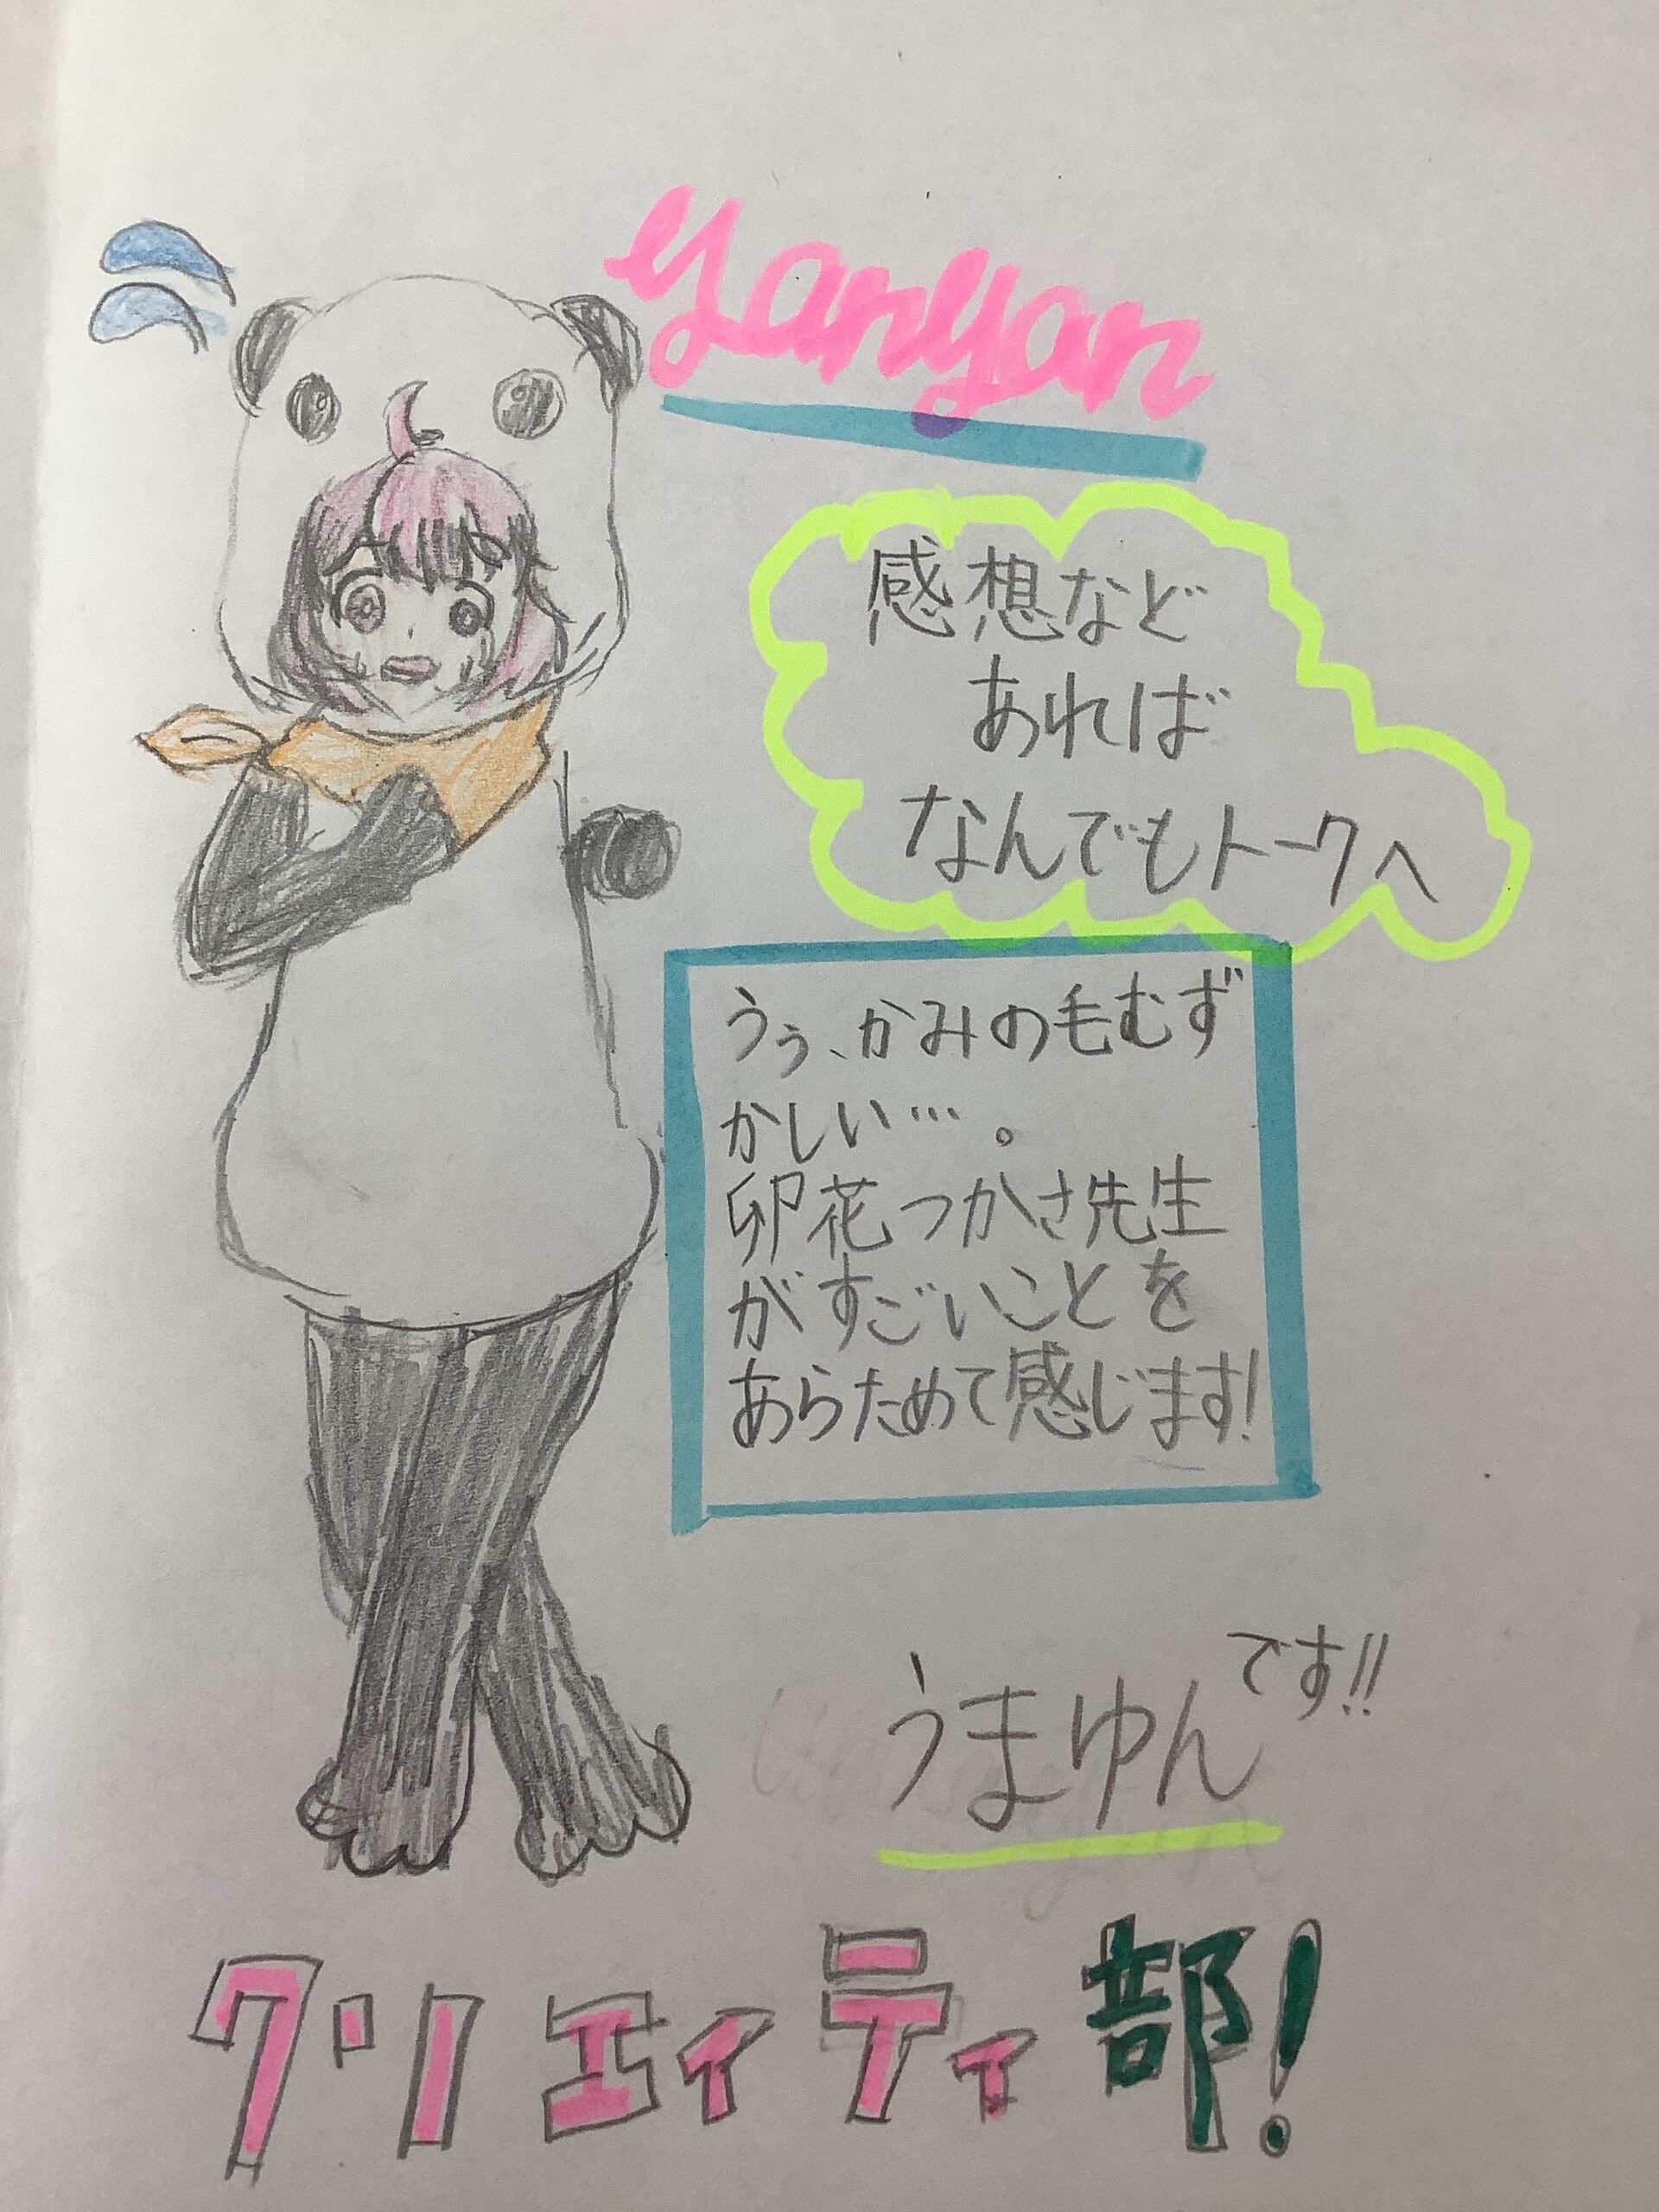 yanyan
感想など
あれば
なんでもトークへ
うぅ、かみの毛むず
かしい…。
卯花つかさ先生
がすごいことを
あらためて感じます!
うまゆんです!!
クリエィティ部!